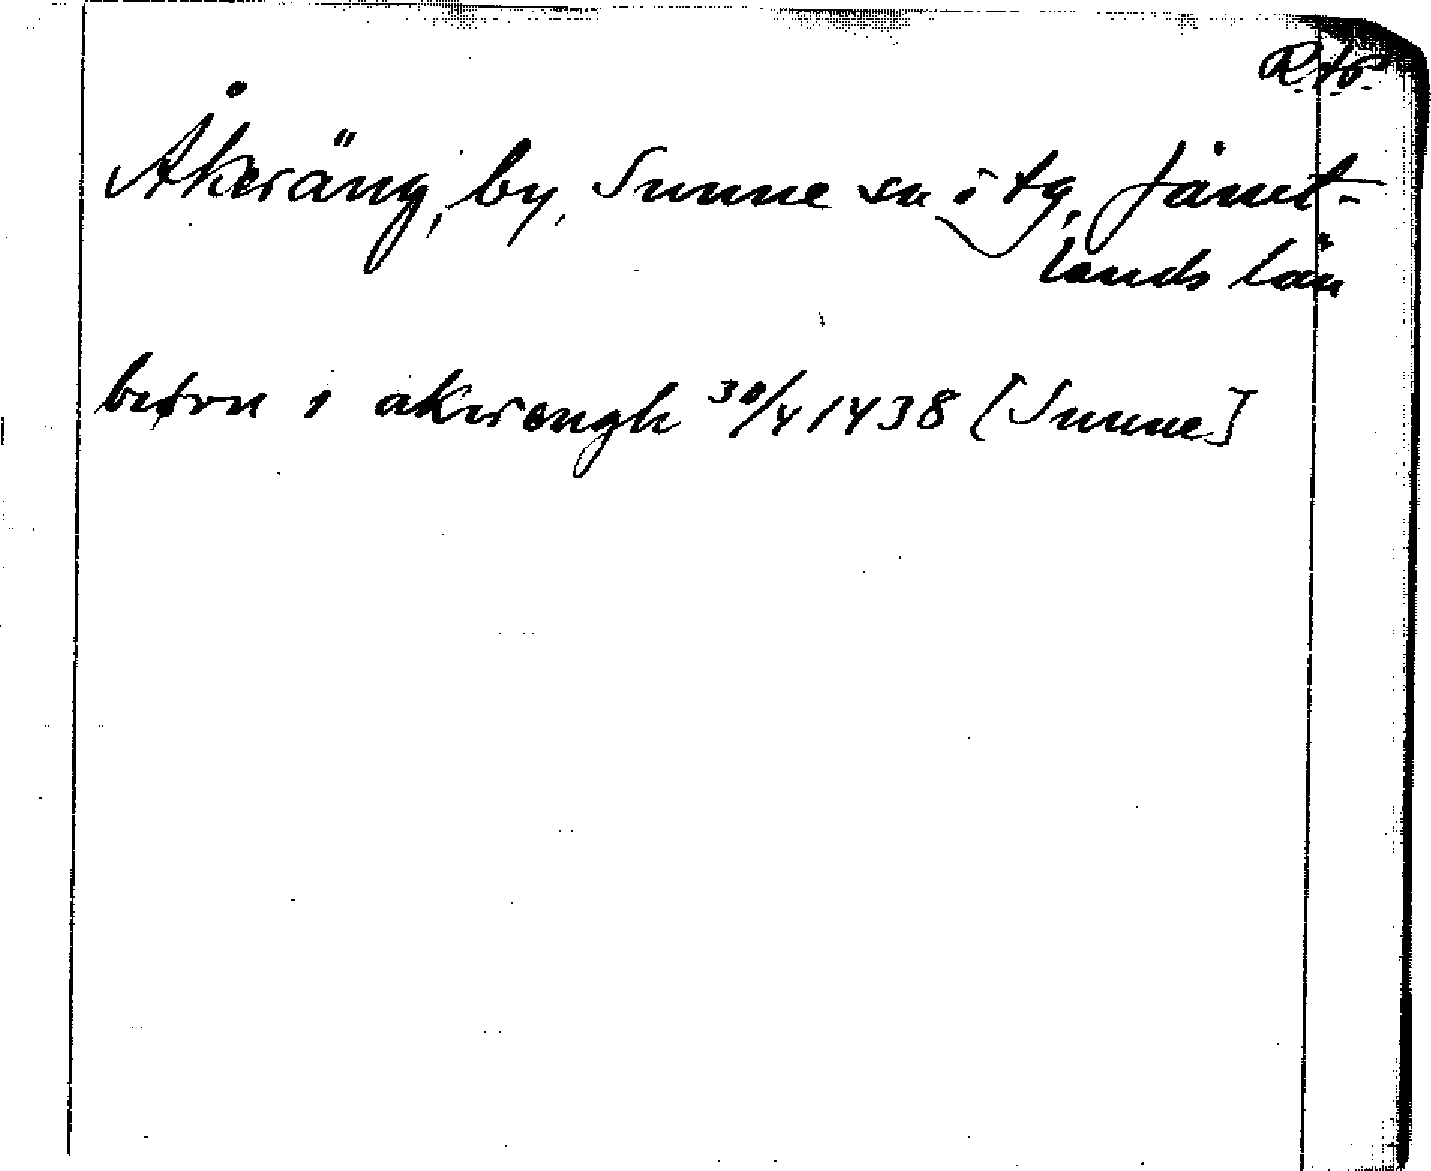 Åkeräng, by, Sunne sn i tg, Jämt-
lands län
biørn i akerængh 30/4 1438 [Sunne]